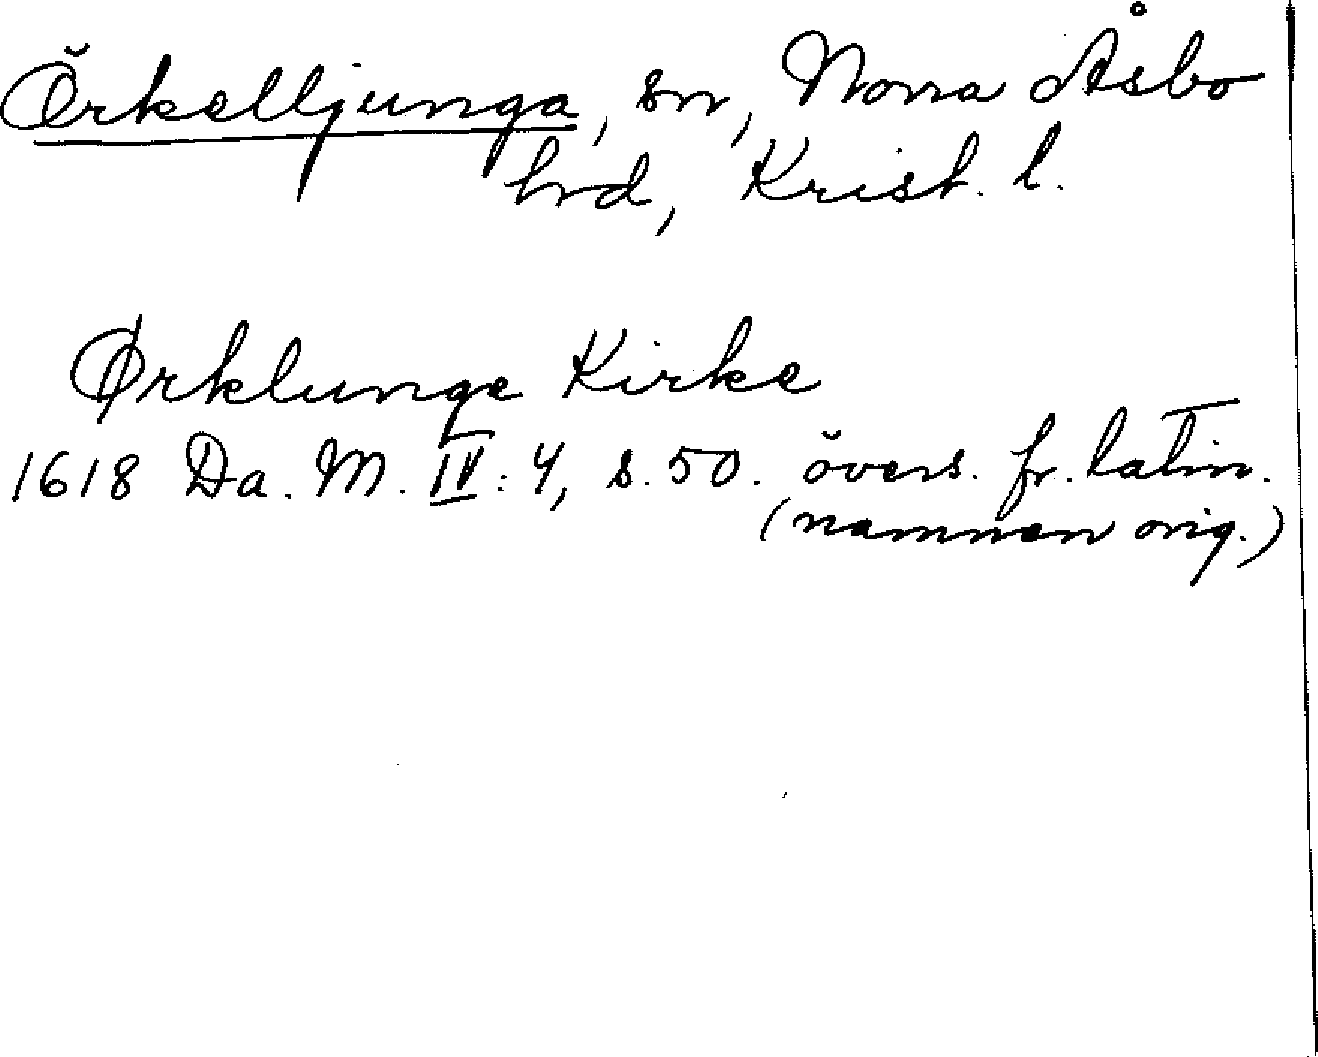 Örkelljunga, sn, Norra Åsbo
hrd, Krist. l.
Ørklunge Kirke
1618 Da. M. IV: 4, s. 50. övers. fr. latin.
(namnen orig.)